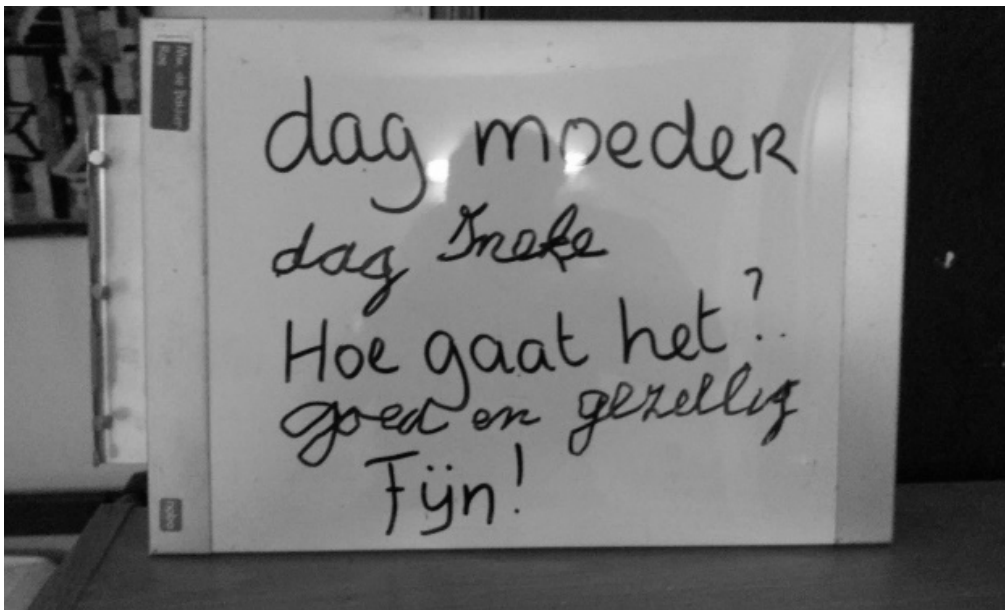 dag moeder
dag Ineke
Hoe gaat het?
goed en gezellig
Fijn!
nobo